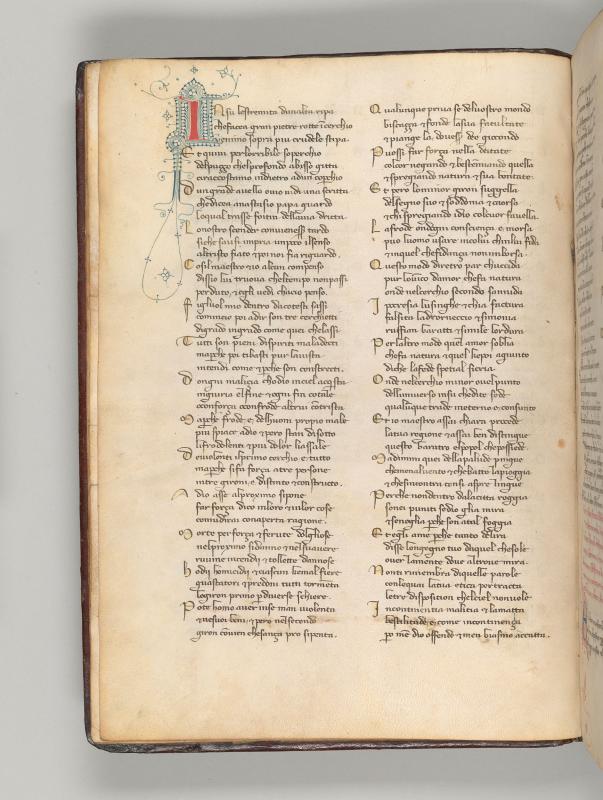 In su lestremita dunalta ripa
chefacea gran pietre rotte incerchio
venimmo sopra piu crudele stipa
Et quiui per lorribile soperchio
delpuzzo chelprofondo abisso gitta
ciraccostamo indietro adun coperchio
dungrande auello ouio uidi una scritta
chedicea anastasio papa guardo
loqual trasse fotin dellauia dritta
Lo nostro scender conuienesser tardo
siche sausi impria unpoco ilsenso
altristo fiato & poi noi fia riguardo.
Cosi maestro & io alcun compenso
dissio lui truoua cheltempo nonpassi
perduto, & egli uedi chacio penso.
Figliuol mio dentro dacotesti sassi
comincio poi adir son tre cerchietti
digrado ingrado come quei chelassi
Tutti son pieni dispiriti maladetti
maperche poi tibasti pur lauista
intendi come & perche son constretti.
Dongni malizia chodio incielacquista
ingiuria elfine & ogni fin cotale
oconforza oconfrode altrui contrista
Maperche frode e dellhuom proprio male
piu spiace adio & pero stan disotto
lifrodolenti & piu dolor liassale
Deuiolenti ilprimo cerchio e tutto
maperche sifa forza atre persone
intre gironi e distinto & constructo.
A dio asse alproximo sipone
far forza dico inloro & inlor cose
comudirai conaperta ragione.
Morte per forza & ferute dolgliose
nelproximo sidanno & nelsuauere
ruuine incendi & tollette dannose
hodii homicidi & ciascun chemal fiere
guastatori & predoni tutti tormenta
logiron primo per diuerse schiere.
Pote homo auer inse man uiolenta
& nesuoi beni & pero nelsecondo
giron conuien chesança pro sipenta.
Qualunque priua se deluostro mondo
biscazza & fonde lasua facultate
& piange la douesser deo giocondo
Puossi far força nella deitate
colcor negando & bestemiando quella
& spregiando natura & sua bontate.
Et pero lominor giron suggella
delsegno suo & soddoma & caorsa
& chi spregiando idio colcuor fauella.
Lafrode ondogni conscienca e morsa
puo luomo usare incolui chenlui fida
& inquel chefidanza noninborsa.
Questo modo diretro par chuccida
pur louinco damor chefa natura
onde nelcerchio secondo sannida
Ipocresia lusinghe & chia factura
falsita ladroneccio & simonia
ruffian baratti & simile lordura
Perlaltro modo quel amor soblia
chefa natura & quel chepoi agiunto
diche lafede spetial sicria.
Onde nelcerchio minor ouelpunto
delluniuerso insu chedite siede
qualunque trade ineterno e consunto
Et io maestro assai chiara procede
latua ragione & assai ben distingue
questo baratro elpopol chepossiede.
Madimmi quei dellapalude pingue
chemenaluento & chebatte lapioggia
& chesincontran consi aspre lingue
Perche nondentro dalacitta roggia
sonei puniti sedio gliа in ira
& senoglia perche son atal foggia
Et egli ame perche tanto delira
disse longegno tuo daquel chesole
ouer lamente doue altroue mira.
Nonti rimembra diquelle parole
conlequai latua etica pertracta
letre disposition chelciel nonuole
Incontinentia malitia & lamatta
bestialitade & come incontinenza
per men dio offende & men biasmo accatta.